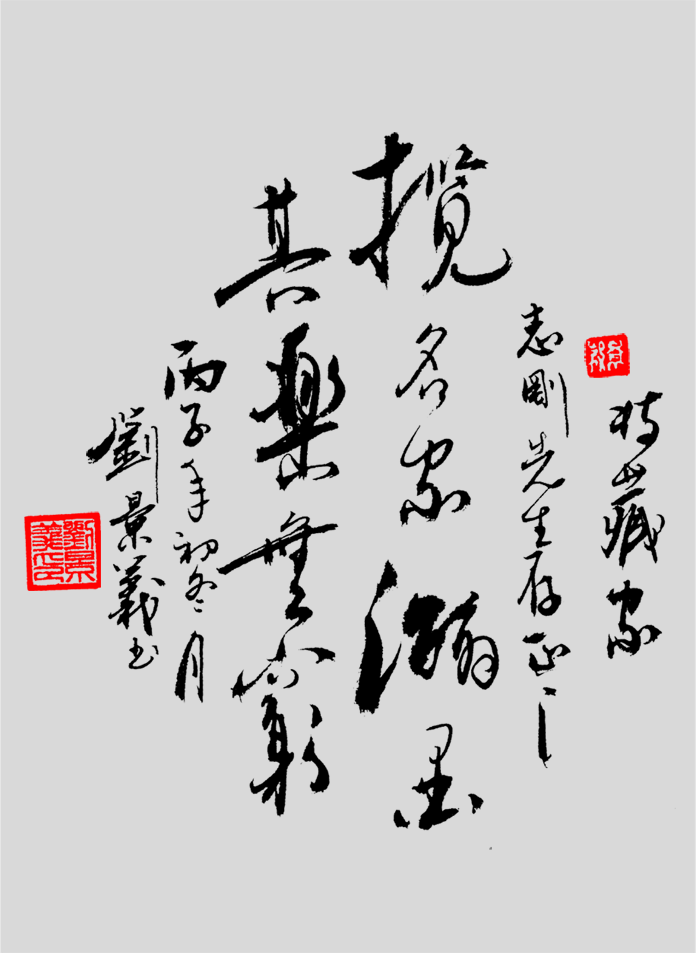 特藏家
志剛先生存正之
攬名家瀚墨
其樂無窮
丙子年初冬月
劉景義书
劉景義印